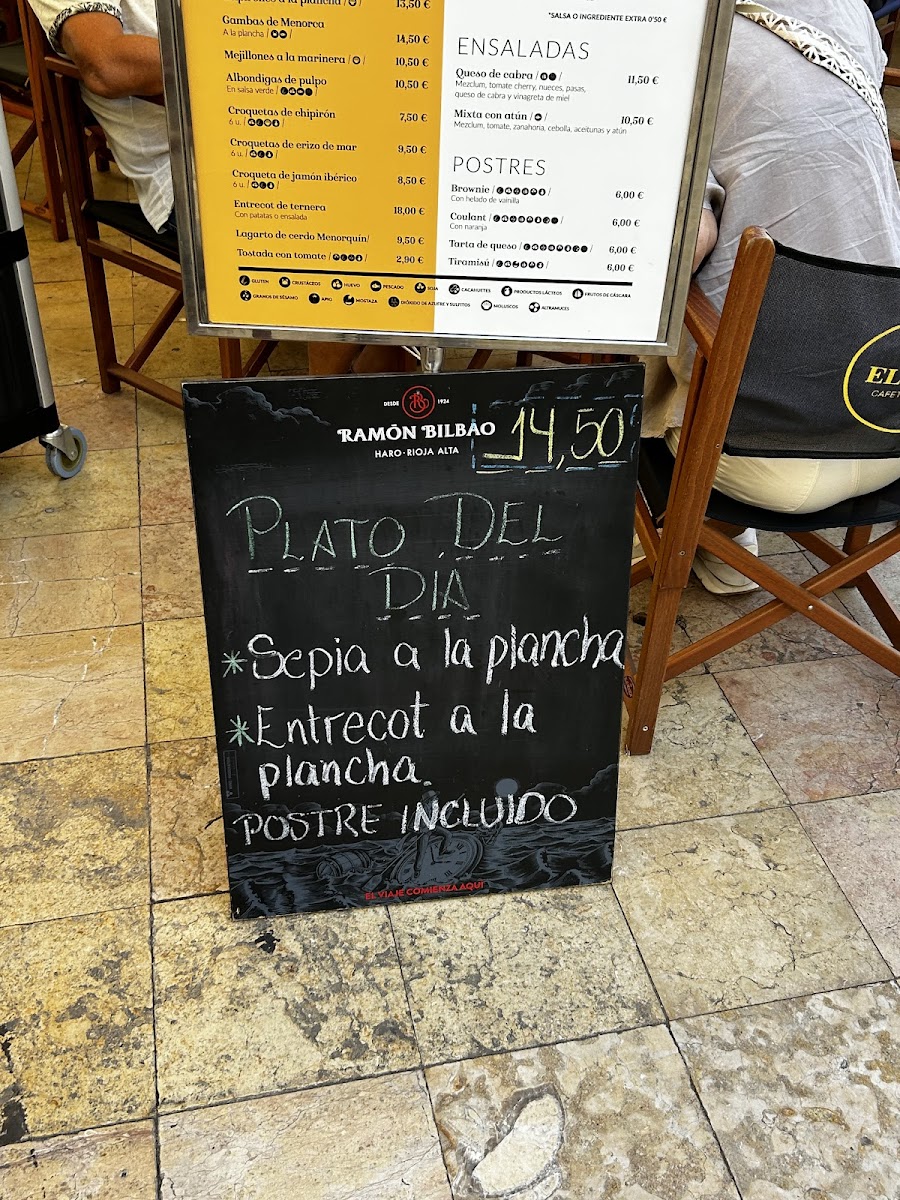 13,50 €
Gambas de Menorca
A la plancha / 14,50 €
Mejillones a la marinera / / 10,50 €
Albondigas de pulpo 10,50 €
En salsa verde / /
Croquetas de chipirón 7,50 €
6 u. / /
Croquetas de erizo de mar 9,50 €
6 u. / /
Croqueta de jamón ibérico 8,50 €
6 u. / /
Entrecot de ternera 18,00 €
Con patatas o ensalada
Lagarto de cerdo Menorquín/ 9,50 €
Tostada con tomate / / 2,90 €
*SALSA O INGREDIENTE EXTRA 0'50 €
ENSALADAS
Queso de cabra / / 11,50 €
Mezclum, tomate cherry, nueces, pasas,
queso de cabra y vinagreta de miel
Mixta con atún / / 10,50 €
Mezclum, tomate, zanahoria, cebolla, aceitunas y atún
POSTRES
Brownie / / 6,00 €
Con helado de vainilla
Coulant / / 6,00 €
Con naranja
Tarta de queso / / 6,00 €
Tiramisú / / 6,00 €
GLUTEN CRUSTÁCEOS HUEVO PESCADO SOJA CACAHUETES PRODUCTOS LÁCTEOS FRUTOS DE CÁSCARA
GRANOS DE SÉSAMO APIO MOSTAZA DIÓXIDO DE AZUFRE Y SULFITOS MOLUSCOS ALTRAMUCES
EL
CAFET
DESDE 1924
RAMÓN BILBAO
HARO · RIOJA ALTA
14,50
PLATO DEL
DIA
* Sepia a la plancha
* Entrecot a la
plancha.
POSTRE INCLUIDO
EL VIAJE COMIENZA AQUÍ